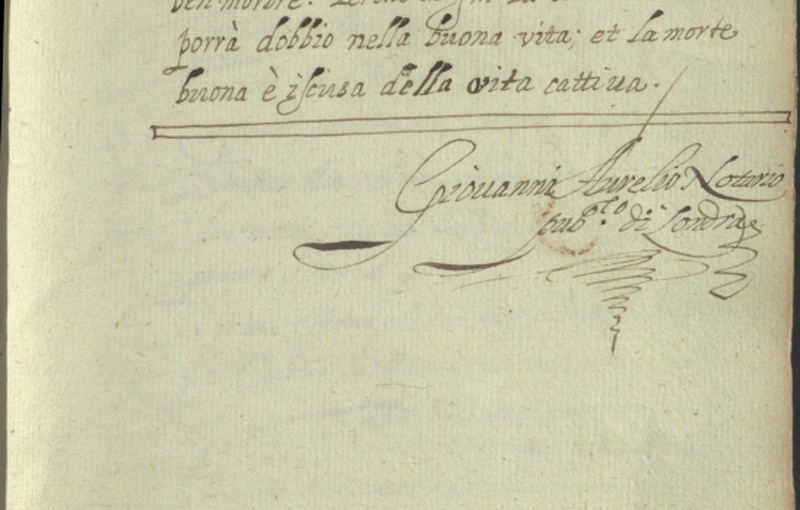 ben morire.
porrà dobbio nella buona vita; et la morte
buona è iscusa della vita cattiua.
Giouanni Aurelio Notario
pub.co di Londra